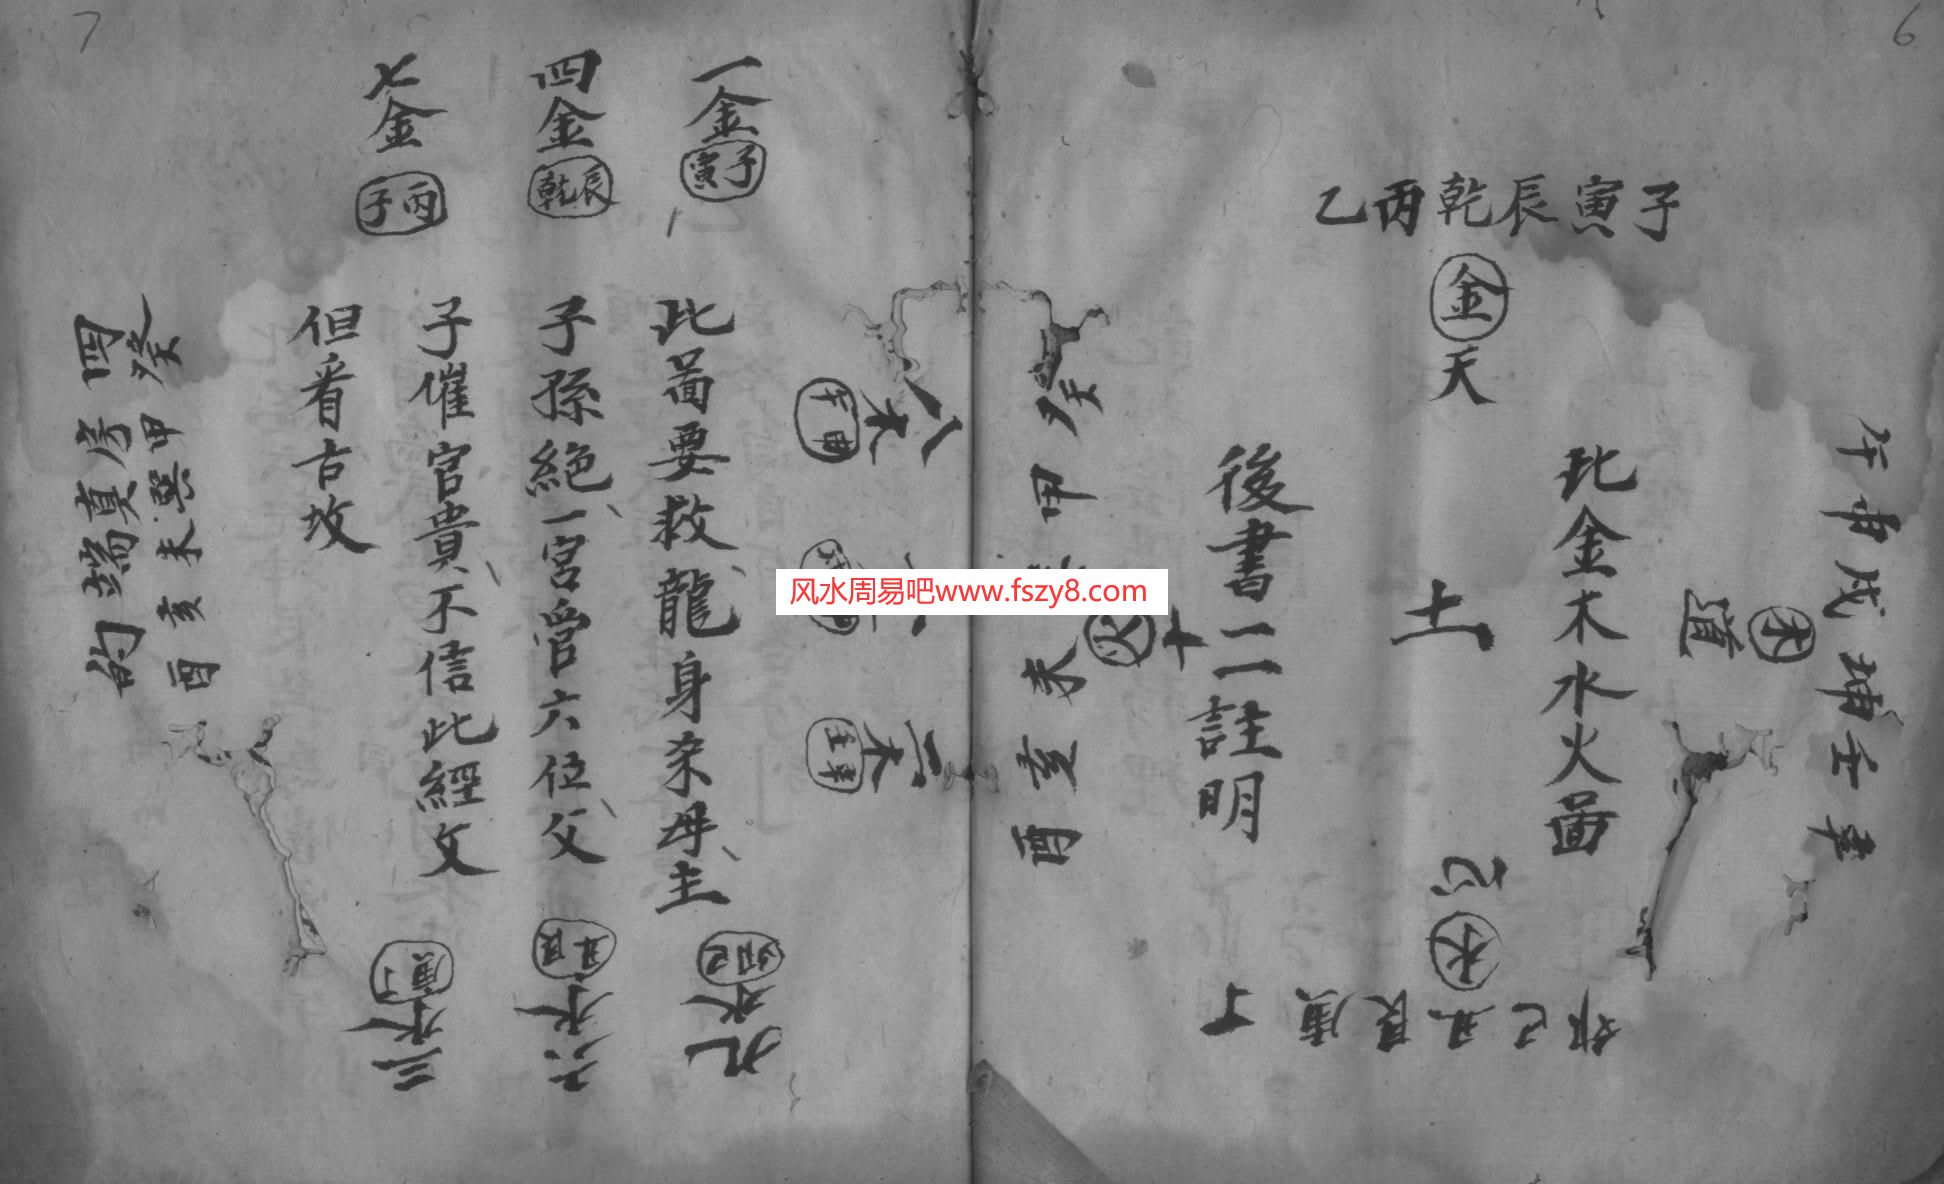 6
子寅辰乾丙乙
金
天
午申戌坤壬辛
木
道
此金木水火圖
土
心
水
卯巳丑艮庚丁
後書二註明
火
癸甲
未亥酉
7
一金
子寅
四金
辰乾
七金
丙子
八木
申午
二木
辛壬
此圖要救龍身宗母主
子孫絕一宮管六位父
子催官貴不信此經文
但看古坟
九水
卯巳
六水
丑艮
三水
庚丁
癸甲巽未亥酉
四房真端的
风水周易吧www.fszy8.com